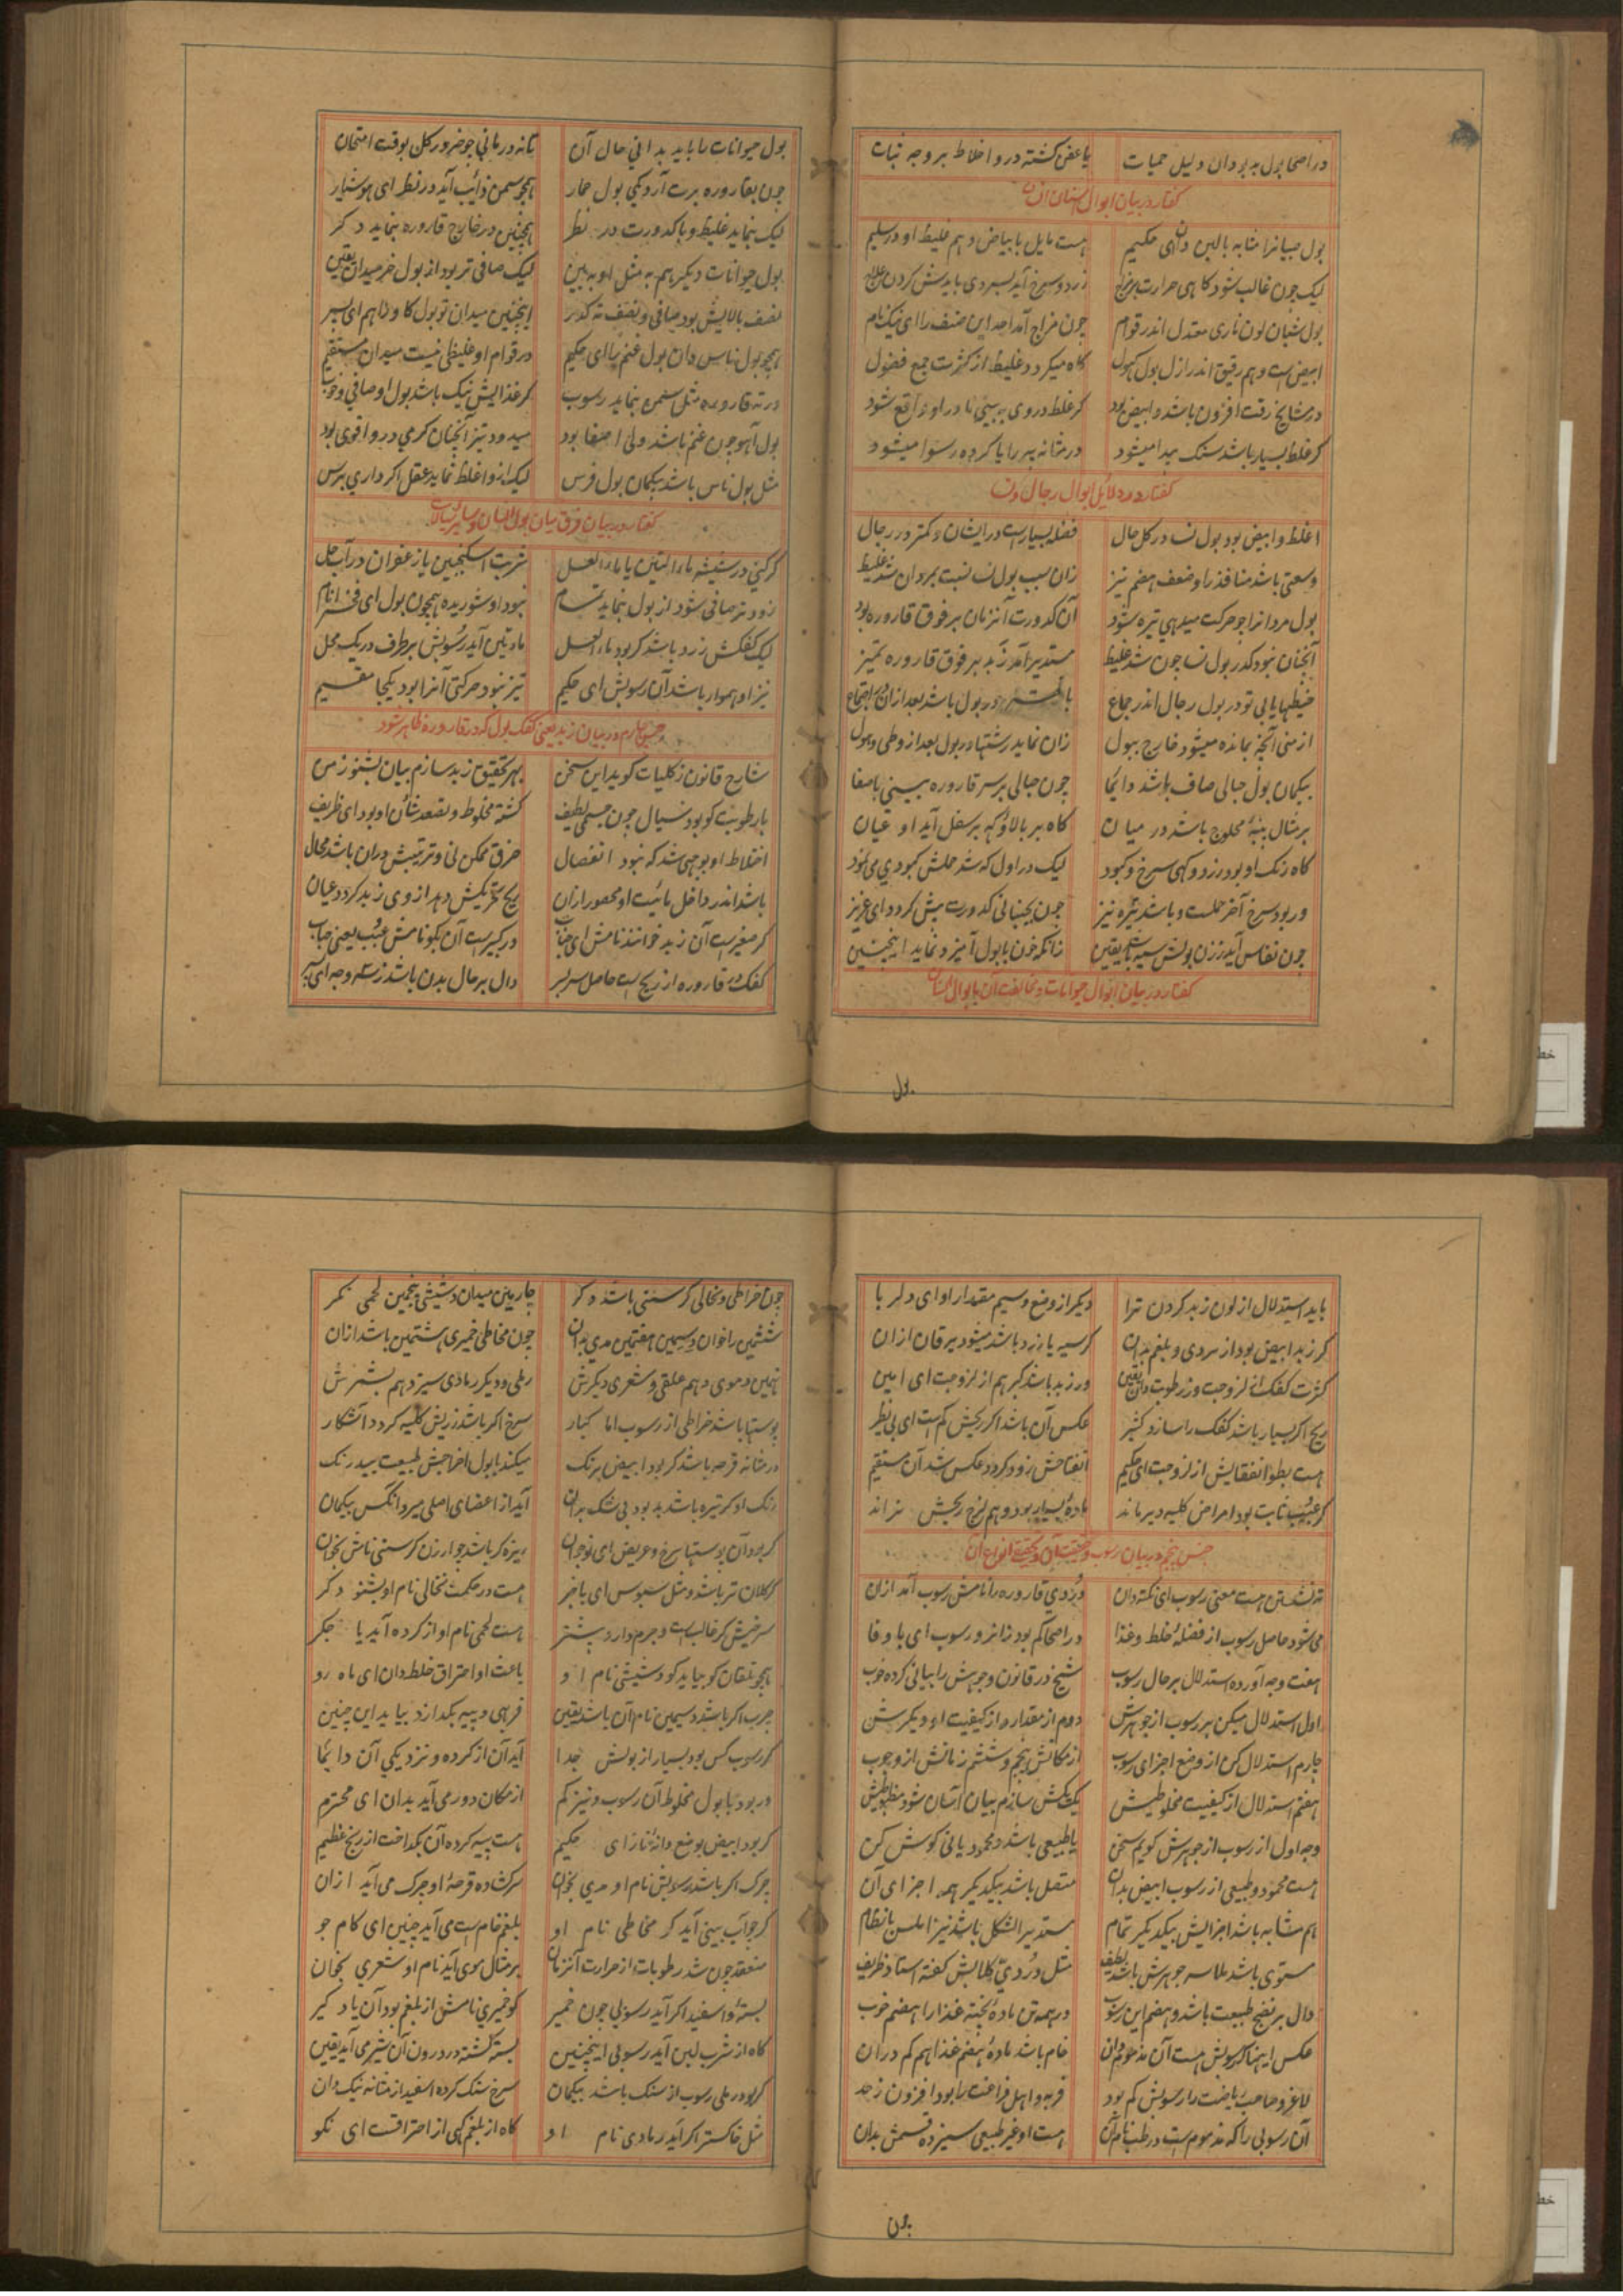 در اصحا بول به بود دان دلیل حمیات
یا عفن کشته درو اخلاط بر وجه ثبات
کفتار در بیان ابوال اسنان
بول صبیانرا مشابه با لبن دان ای حکیم
هست مایل با بیاض و هم غلیظ او در سلیم
لیک چون غالب شود کاهی حرارت بر مزاج
زرد و سرخ آید بسردی بایدش کردن علاج
بول شبان لون ناری معتدل اندر قوام
چون مزاج آمد این صنف را ای نیک نام
ابیض است و هم رقیق اندر ازل بول کهول
کاه میکردد غلیظ از کثرت جمع فضول
در مشایخ رقت افزون باشد و ابیض بود
کر غلظ در وی به بینی نادر او واقع شود
کر غلظ بسیار باشد سنک پیدا میشود
در مثانه پیر را یا کرده رسوا میشود
کفتار در دلایل ابوال رجال و نسا
اغلظ و ابیض بود بول نسا در کل حال
فضله بسیار است در ایشان و کمتر در رجال
وسعتی باشد منافذ را و ضعف هضم نیز
زان سبب بول نسا نسبت بمردان شد غلیظ
بول مردانرا چو حرکت میدهی تیره شود
آن کدورت آنزمان بر فوق قاروره بود
آنچنان نبود کدر بول نسا چون شد غلیظ
مستدیر آمد زبد بر فوق قاروره تمیز
خیطها یابی تو در بول رجال اندر جماع
در بول باشد بعد ازان
از منی آنچه بمانده میشود خارج ببول
زان نماید رشتها در بول بعد از وطی
بیکمان بول حبالی صاف باشد دایما
چون حبالی بر سر قاروره بینی با صفا
بر مثال پنبهٔ محلوج باشد در میان
کاه بر بالا و که بر سفل آید او عیان
کاه رنک او بود زرد و کهی سرخ و کبود
لیک در اول که شد حملش کبودی می نمود
ور بود سرخ آخر حملست و باشد تیره نیز
چون بجنبانی کدورت بیش کردد ای عزیز
چون نفاس آید ز زن بولش سیه باشد یقین
زانکه خون با بول آمیزد نماید اینچنین
کفتار در بیان ابوال حیوانات و مخالفت آن با بوال انسان
بول
بول حیوانات را باید بدانی حال آن
تا نه در مانی چو خر در کل بوقت امتحان
چون بقاروره برت آرد کی بول حمار
همچو سمن ذائب آید در نظر ای هوشیار
لیک بنماید غلیظ و با کدورت در نظر
همچنین در خارج قاروره بنماید دکر
بول حیوانات دیکر هم به مثل او به بین
لیک صافی تر بود از بول خر میدان یقین
نصف بالایش بود صافی و نصف ته کدر
اینچنین میدان تو بول کاو را هم ای پسر
همچو بول ناس دان بول غنم را ای حکیم
در قوام او غلیظی نیست میدان مستقیم
در ته قاروره مثل سمن بنماید رسوب
کر غذایش نیک باشد بول او صافی و خوب
بول آهو چون غنم باشد ولی اصفا بود
میدود تیز آنچنان کرمی درو اقوی بود
مثل بول ناس باشد بیکمان بول فرس
لیک ازو اغلظ نماید عقل اکر داری برس
کفتار در بیان فرق میان بول انسان و سایر سیالات
کر کنی در شیشه ماءالتین یا ماءالعسل
شربت اسکنجبین یا زعفران در آب حل
زود تر صافی شود از بول بنماید تمام
نبود او شوریده همچون بول ای فخر انام
لیک کفکش زرد باشد کر بود ماءالعسل
ماء تین آید رسوبش بر طرف در یک محل
نیز او هموار باشد آن رسوبش ای حکیم
تیز نبود حرکتی آنرا بود یکجا مقیم
جنس چهارم در بیان زبد یعنی کفک بول که در قاروره ظاهر شود
شارح قانون ز کلیات کوید این سخن
بهر تحقیق زبد سازم بیان بشنو ز من
با رطوبت کو بود سیال چون جسمی لطیف
کشته مخلوط و تصعد شان او بود ای ظریف
اختلاط او بوجهی شد که نبود انفصال
خرق ممکن نی و ترتیبش دران باشد محال
باشد اندر داخل مائیت او محصور ازان
ریح تحریکش دهد از وی زبد کردد عیان
کر صغیر است آن زبد خوانند نامش ای جناب
ور کبیر است آن بکو نامش عبب یعنی حباب
کفک در قاروره از ریح است حاصل سربسر
دال بر حال بدن باشد ز سه وجه ای پسر
باید استدلال از لون زبد کردن ترا
دیکر از وضع و سیم مقدار او ای دلربا
کر زبد ابیض بود از سردی و بلغم بدان
کر سیه یا زرد باشد میشود یرقان ازان
کثرت کفک از لزوجت وز رطوبت دان یقین
ور زبد باشد کبر هم از لزوجت ای امین
ریح اکر بسیار باشد کفک را سازد کثیر
عکس آن باشد اکر ریحش کم است ای بی نظیر
هست بطؤ انفقایش از لزوجت ای حکیم
انفتاحش زود کردد عکس شد آن مستقیم
کر عبب ثابت بود امراض کلیه دیر ماند
ماده بسیار بود و هم لزج ریحش نراند
جنس پنجم در بیان رسوب و حقیقت آن و تحقیق انواع آن
ته نشستن هست معنی رسوب ای نکته دان
دردی قاروره را نامش رسوب آمد ازان
می شود حاصل رسوب از فضلهٔ خلط و غذا
در اصحا کم بود زائد رسوب ای با وفا
هفت وجه آورده استدلال بر حال رسوب
شیخ در قانون وجوهش را بیانی کرده خوب
اول استدلال میکن بر رسوب از جوهرش
دوم از مقدار و از کیفیت او دیکرش
چارم استدلال کن از وضع اجزای رسوب
از مکانش پنجم و ششم زمانش از وجوب
هفتم استدلال از کیفیت مخلوطیش
یک بیکش سازم بیان آسان شود مظبوطیش
وجه اول از رسوب از جوهرش کویم سخن
یا طبیعی باشد و محمود یا نی کوش کن
هست محمود و طبیعی از رسوب ابیض بدان
متصل باشد بیکدیکر همه اجزای آن
هم مشابه باشد اجزایش بیکدیکر تمام
مستدیر الشکل باشد نیز املس با نظام
مستوی باشد ملاسه جوهرش باشد لطیف
مثل دردی کلابش کفته استاد ظریف
دال بر نضج طبیعت باشد و هضم این رسوب
در همه تن مادهٔ پخته غذا را هضم خوب
عکس اینها کر رسوبش هست آن مذموم دان
خام باشد مادهٔ هضم غذا هم کم دران
لاغر و صاحب ریاضت را رسوبش کم بود
فربه و اهل فراغت را بود افزون ز حد
آن رسوبی را که مذموم است در طب نام آن
هست او غیر طبیعی سیزده قسمش بدان
چون
چون خراطی و نخالی کرسنی باشد دکر
چارمین میدان دشیشی پنجمین لحمی نکر
ششمین را خوان دسیمی هفتمین مدی بدان
چون مخاطی خمیری هشتمین باشد ازان
نهمین دموی دهم علقی و شعری دیکرش
رملی و دیکر رمادی سیزدهم بشمرش
پوستها باشد خراطی از رسوب اما کبار
سرخ اکر باشد ز ریش کلیه کردد آشکار
در مثانه قرحه باشد کر بود ابیض برنک
میکند با بول اخراجش طبیعت بیدرنک
رنک او کر تیره باشد بد بود بی شک بدان
آید از اعضای اصلی میرو انکس بیکمان
کر بود آن پوستها سرخ و عریض ای نوجوان
ریزه کر باشد چو ارزن کرسنی نامش بخوان
کر کلان تر باشد و مثل سبوس ای باخبر
هست در حکمت نخالی نام او بشنو دکر
سرخیش کر غالب است و جرم دارد بیشتر
هست لحمی نام او از کرده آید یا جکر
همچو تلقان کو بیاید کو دشیشی نام او
باعث او احتراق خلط دان ای ماه رو
چرب اکر باشد دسیمین نام آن باشد یقین
فربهی و پیه بکدازد بیاید این چنین
کر رسوب کس بود بسیار از بولش جدا
آید آن از کرده و نزدیکی آن دایما
ور بود با بول مخلوط آن رسوب و نیز کم
از مکان دور می آید بدان ای محترم
کر بود ابیض بوضع دانهٔ نار ای حکیم
هست پیه کرده آن بکداخت از رنج عظیم
چرک اکر باشد رسوبش نام او مدی بخوان
سر کشاده قرحهٔ او چرک می آید ازان
کر چو آب بینی آید کر مخاطی نام او
بلغم خام است می آید چنین ای کام جو
منعقد چون شد رطوبات از حرارت آنزمان
بر مثال موی آید نام او شعری بخوان
بسته و اسفید اکر آید رسوبی چون خمیر
کو خمیری نامش از بلغم بود آن یاد کیر
کاه از شرب لبن آید رسوبی اینچنین
بسته کشته در درون آن شیر می آید یقین
کر بود رملی رسوب از سنک باشد بیکمان
سرخ سنک کرده اسفید از مثانه نیک دان
مثل خاکستر اکر آید رمادی نام او
کاه از بلغم کهی از احتراقست ای نکو